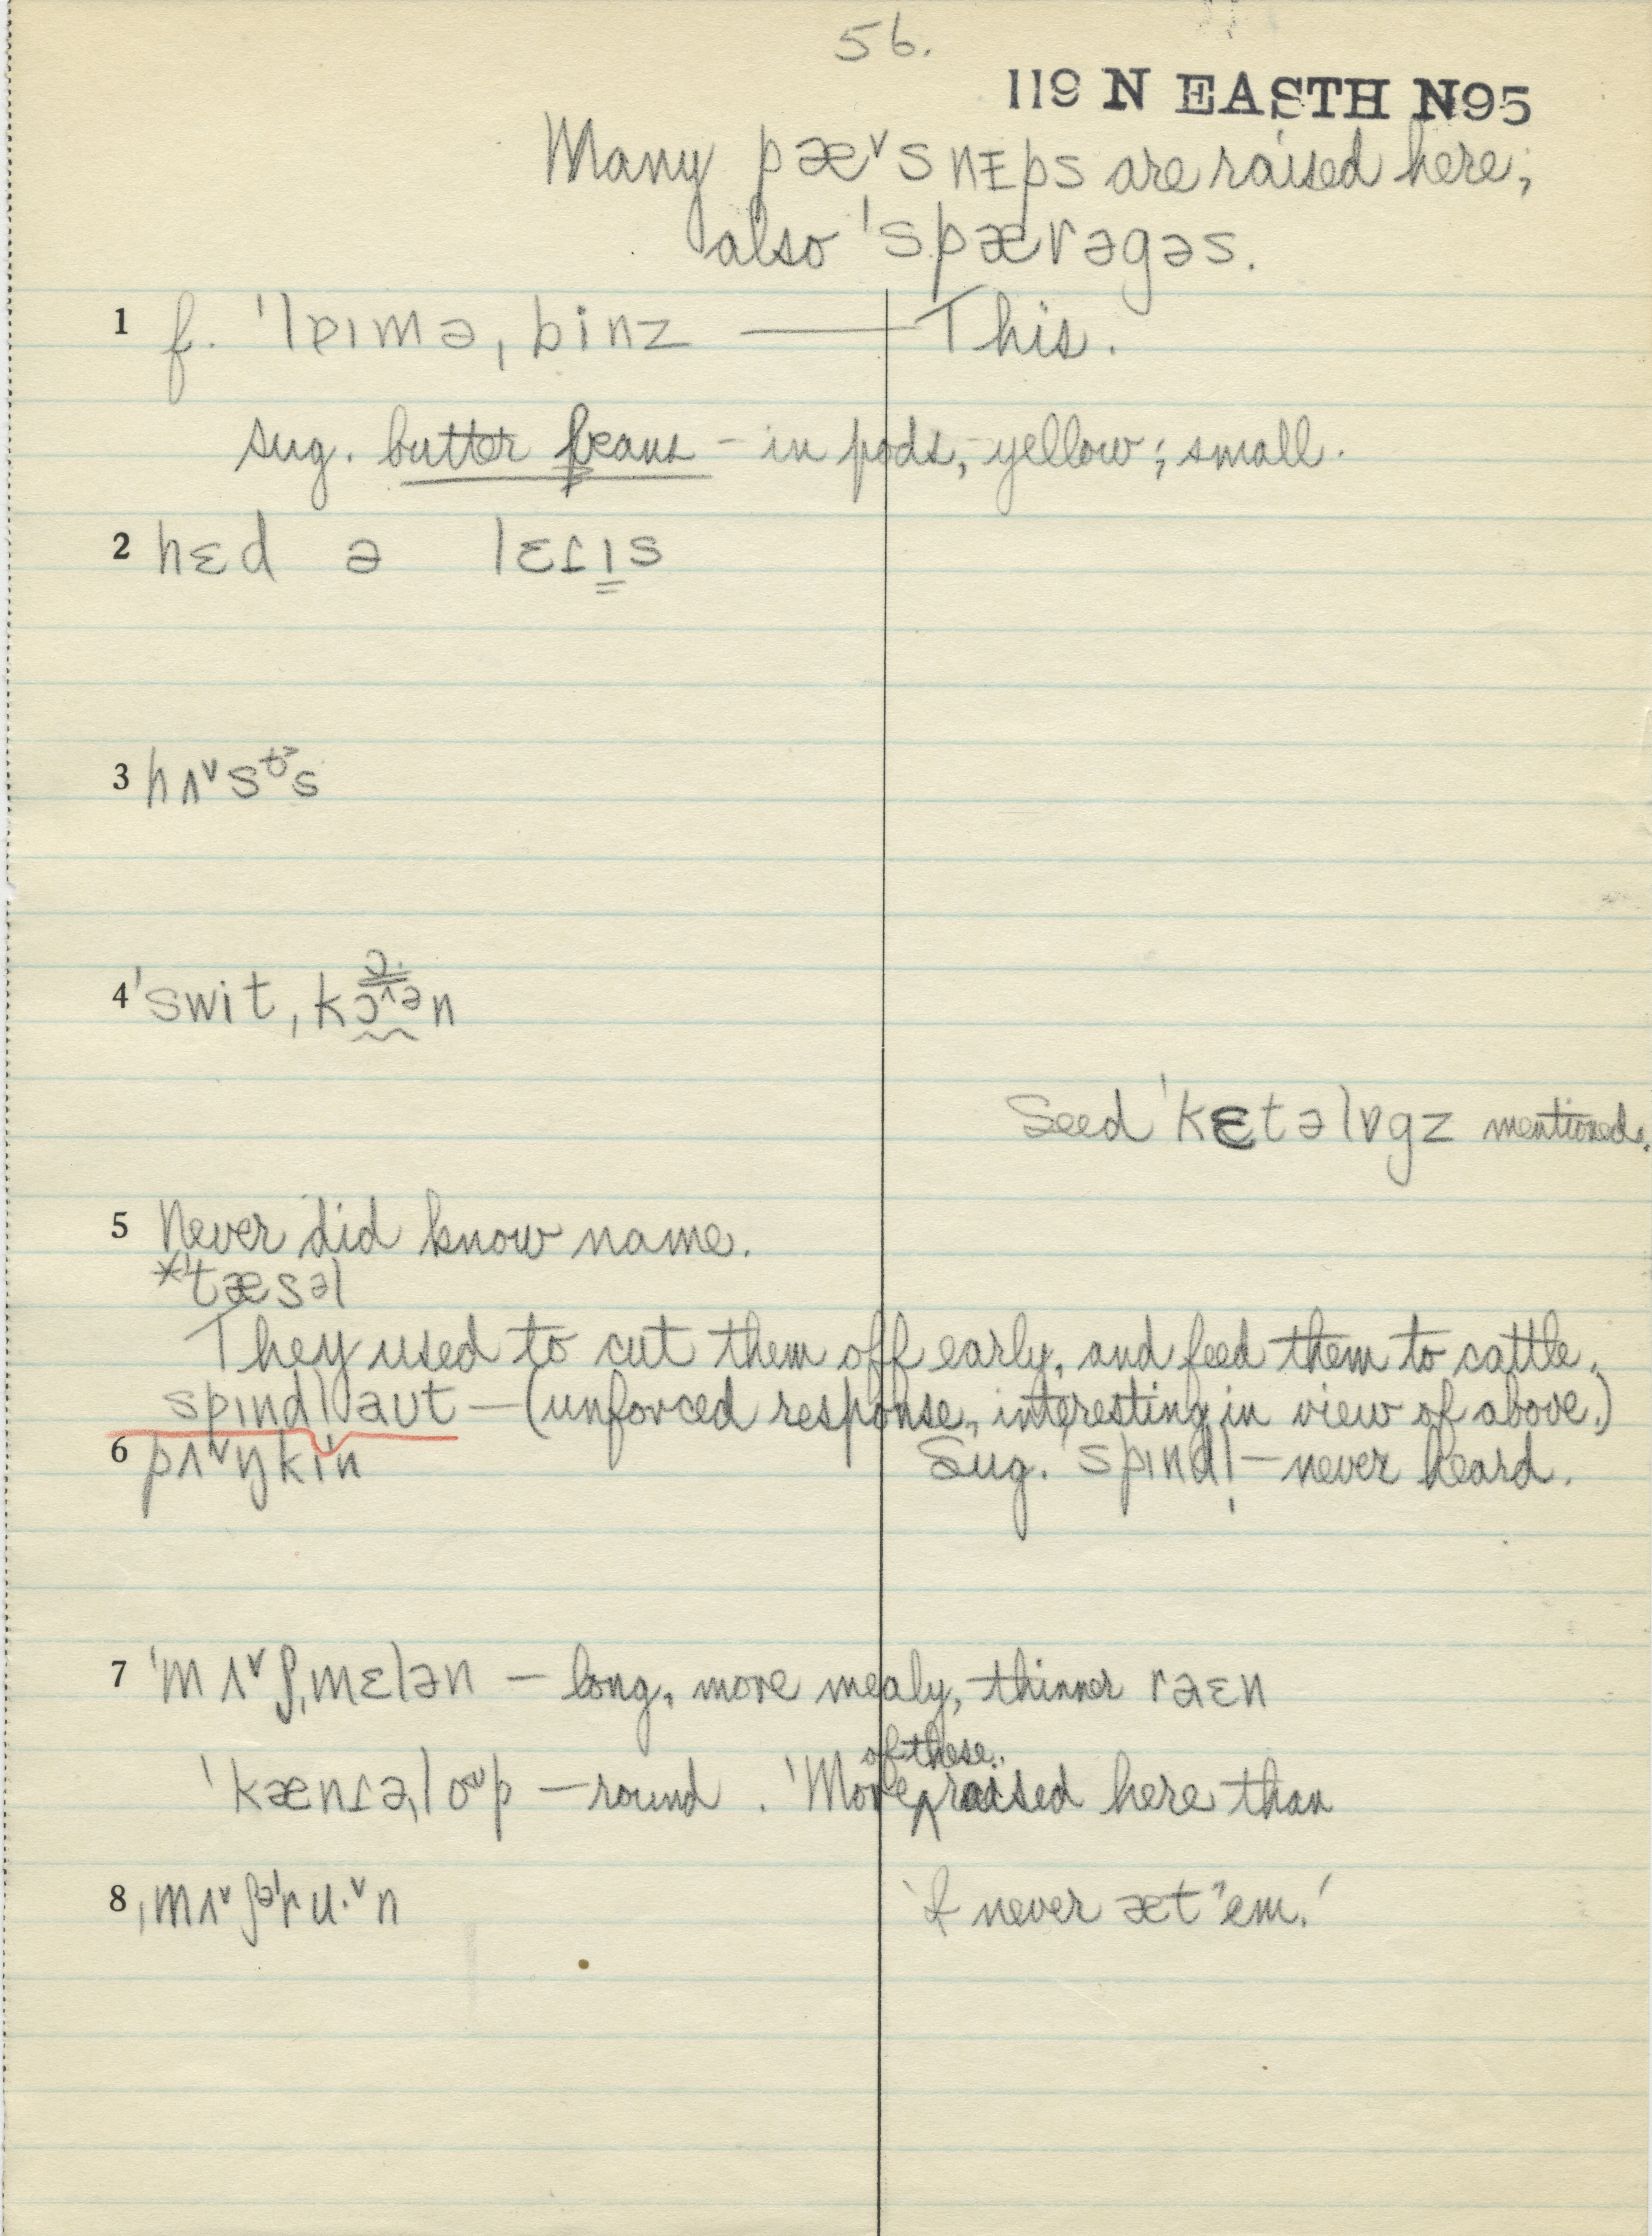 56.
119 N EASTH N95
Many pæ˅snɪps are raised here;
also ˈspærəgəs.
1 f. ˈlɐɪmə,binz — This.
sug. butter beans – in pods, yellow; small.
2 hɛd ə lɛɾɪs
3 hʌ˅s s
4 ˈswit,k n
Seed ˈkɛtəlɒgz mentioned.
5 Never did know name.
*ˈtæsəl
They used to cut them off early, and feed them to cattle.
spɪndl̩ aut — (unforced response, interesting in view of above.)
6 pʌ˅ŋkin Sug. spɪndl̩ – never heard.
7 ˈmʌ˅ʃˌmɛlən – long, more mealy, thinner raɛn
of these
ˈkænɾəˌloʊp – round. 'More ^ raised here than
8 ˌmʌ˅ʃəˈru·˅n 'I never æt "em.'